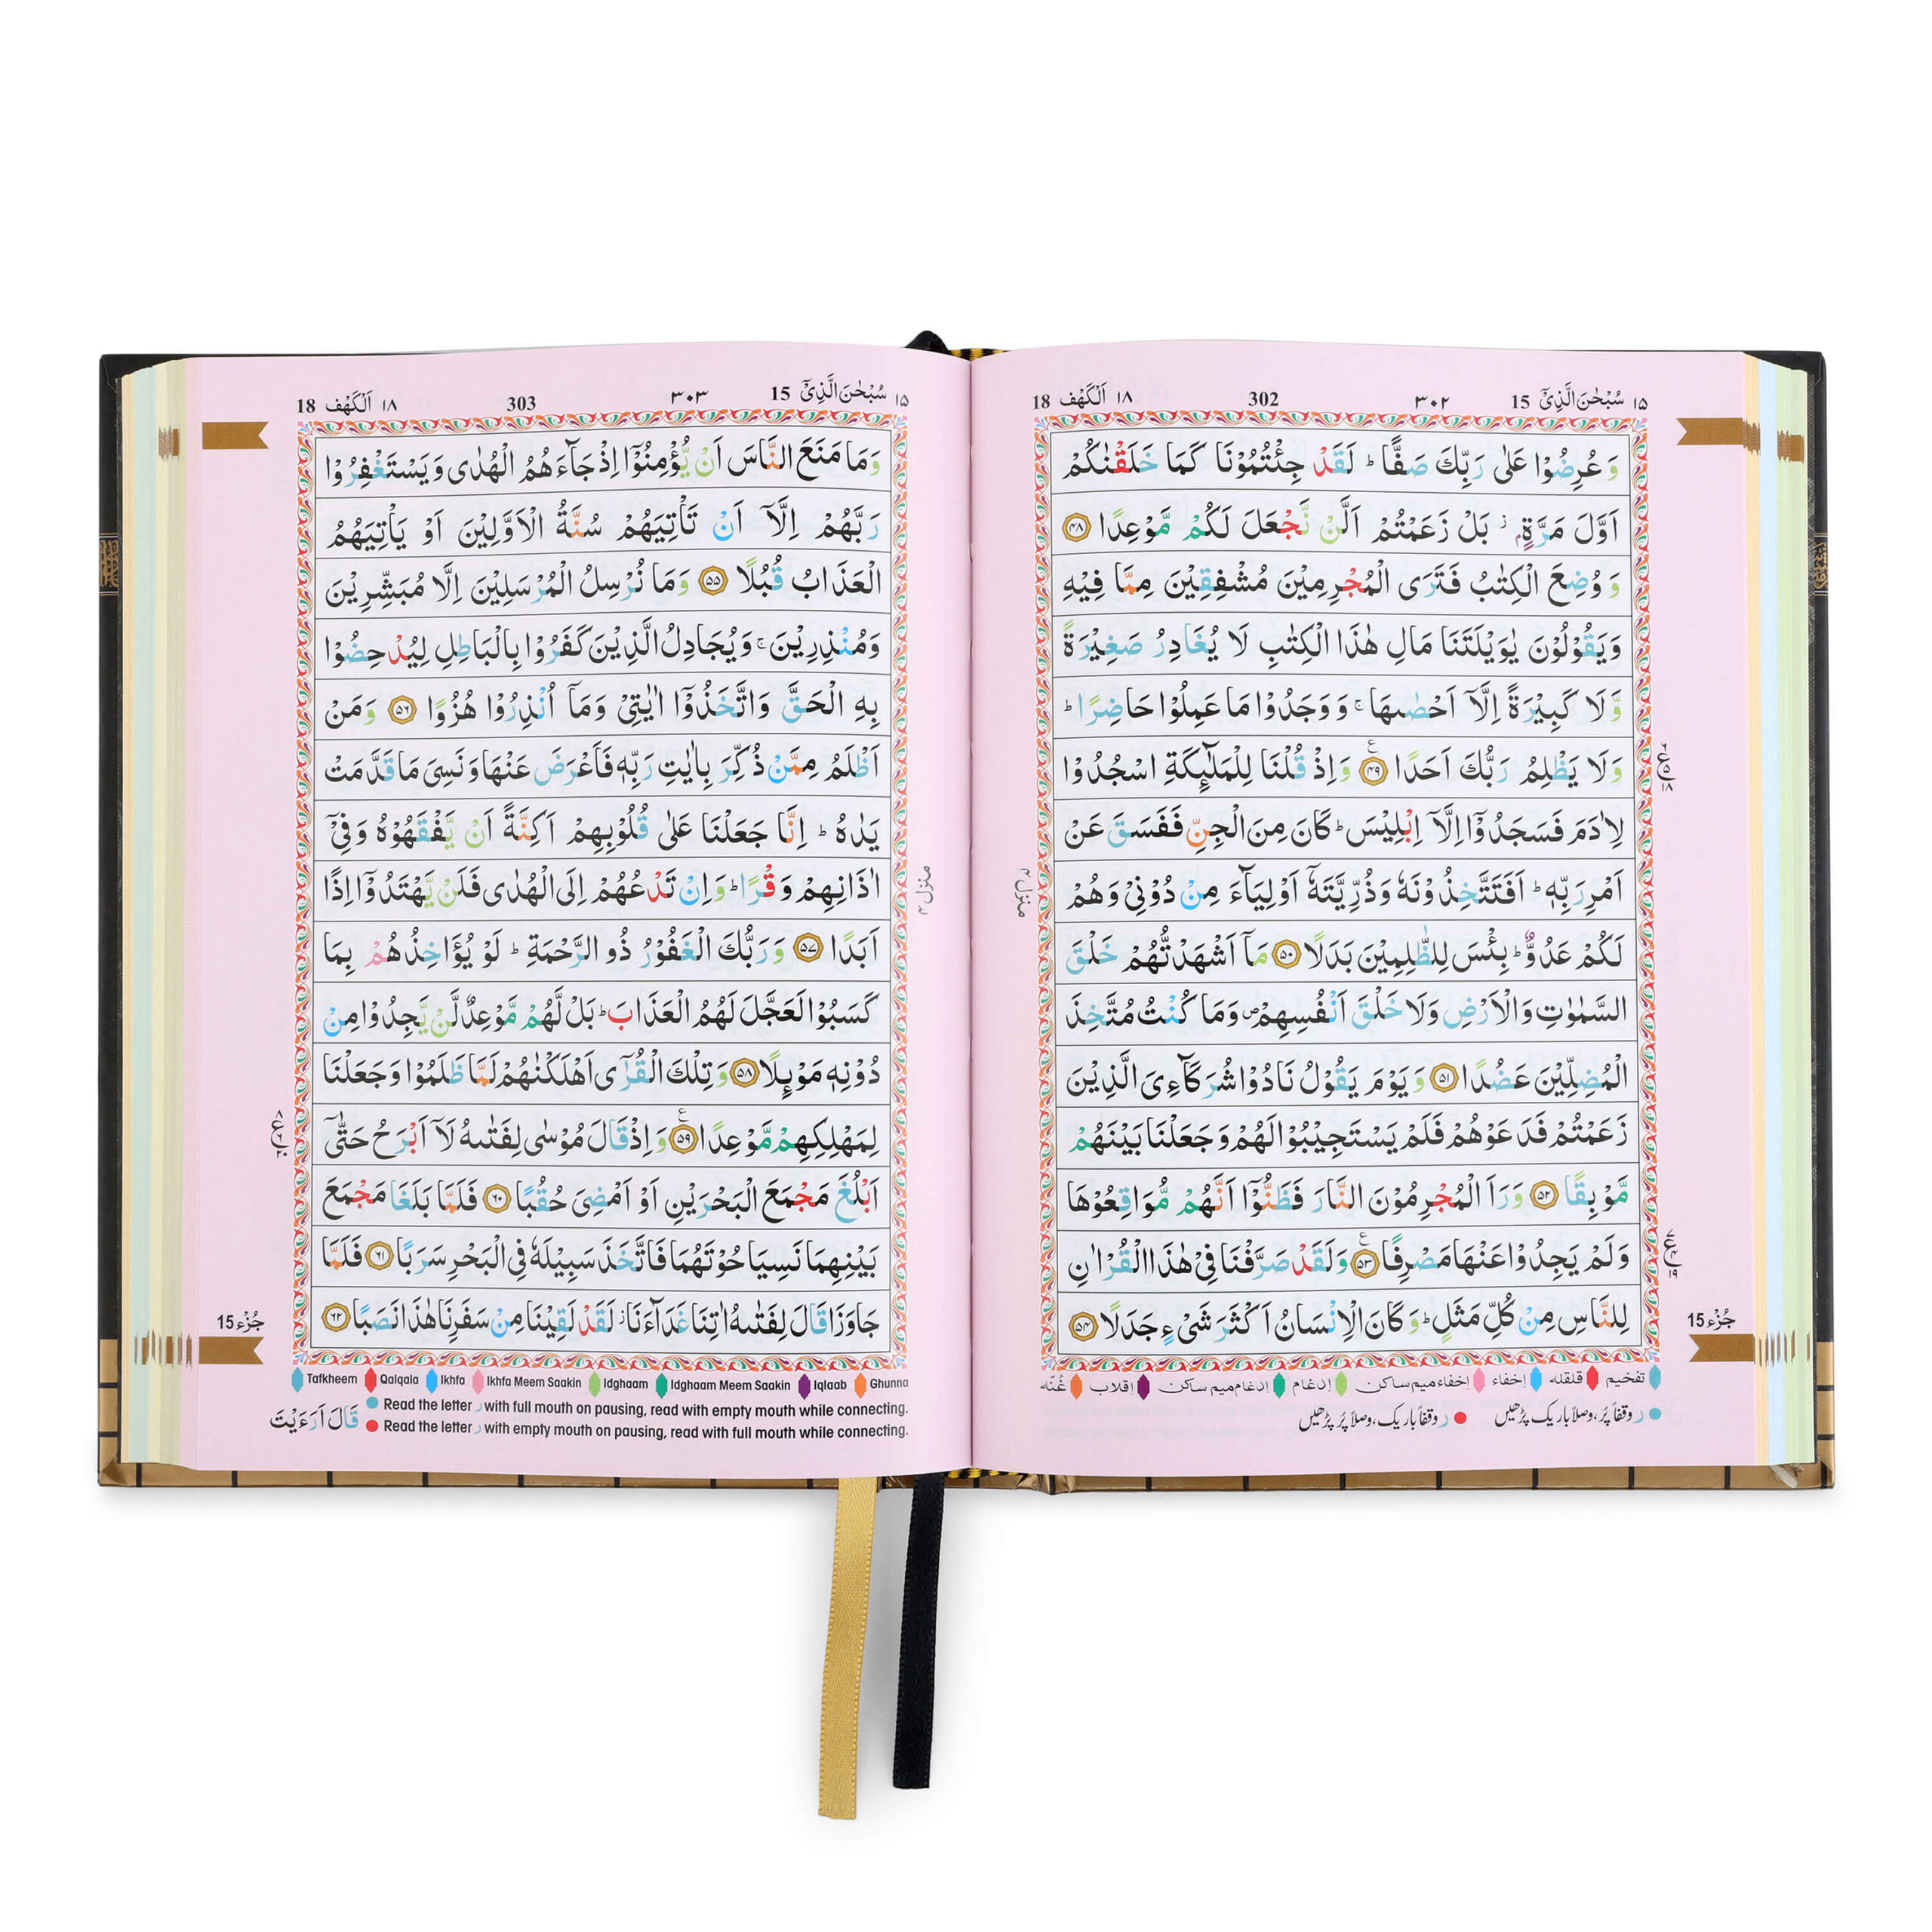 ١٥ سُبْحٰنَ الَّذِىْٓ 15 ٣٠٢ 302 ١٨ اَلْكَهْف 18
وَعُرِضُوْا عَلٰى رَبِّكَ صَفًّا ؕ لَقَدْ جِئْتُمُوْنَا كَمَا خَلَقْنٰكُمْ
اَوَّلَ مَرَّةٍۭ ؗ بَلْ زَعَمْتُمْ اَلَّنْ نَّجْعَلَ لَكُمْ مَّوْعِدًا ﴿۴۸﴾
وَوُضِعَ الْكِتٰبُ فَتَرَى الْمُجْرِمِيْنَ مُشْفِقِيْنَ مِمَّا فِيْهِ
وَيَقُوْلُوْنَ يٰوَيْلَتَنَا مَالِ هٰذَا الْكِتٰبِ لَا يُغَادِرُ صَغِيْرَةً
وَّلَا كَبِيْرَةً اِلَّاۤ اَحْصٰىهَا ۚ وَوَجَدُوْا مَا عَمِلُوْا حَاضِرًا ؕ
وَلَا يَظْلِمُ رَبُّكَ اَحَدًا ﴿۴۹﴾ وَاِذْ قُلْنَا لِلْمَلٰٓئِكَةِ اسْجُدُوْا
لِاٰدَمَ فَسَجَدُوْۤا اِلَّاۤ اِبْلِيْسَ ؕ كَانَ مِنَ الْجِنِّ فَفَسَقَ عَنْ
اَمْرِ رَبِّهٖ ؕ اَفَتَتَّخِذُوْنَهٗ وَذُرِّيَّتَهٗۤ اَوْلِيَآءَ مِنْ دُوْنِىْ وَهُمْ
لَكُمْ عَدُوٌّ ؕ بِئْسَ لِلظّٰلِمِيْنَ بَدَلًا ﴿۵۰﴾ مَاۤ اَشْهَدْتُّهُمْ خَلْقَ
السَّمٰوٰتِ وَالْاَرْضِ وَلَا خَلْقَ اَنْفُسِهِمْ ۪ وَمَا كُنْتُ مُتَّخِذَ
الْمُضِلِّيْنَ عَضُدًا ﴿۵۱﴾ وَيَوْمَ يَقُوْلُ نَادُوْا شُرَكَآءِىَ الَّذِيْنَ
زَعَمْتُمْ فَدَعَوْهُمْ فَلَمْ يَسْتَجِيْبُوْا لَهُمْ وَجَعَلْنَا بَيْنَهُمْ
مَّوْبِقًا ﴿۵۲﴾ وَرَاَ الْمُجْرِمُوْنَ النَّارَ فَظَنُّوْۤا اَنَّهُمْ مُّوَاقِعُوْهَا
وَلَمْ يَجِدُوْا عَنْهَا مَصْرِفًا ﴿۵۳﴾ وَلَقَدْ صَرَّفْنَا فِىْ هٰذَا الْقُرْاٰنِ
لِلنَّاسِ مِنْ كُلِّ مَثَلٍ ؕ وَكَانَ الْاِنْسَانُ اَكْثَرَ شَىْءٍ جَدَلًا ﴿۵۴﴾
منزل ۴
جُزْء 15
تفخیم قلقله إخفاء إخفاء میم ساکن إدغام إدغام میم ساکن إقلاب غُنّه
ر وقفاً پُر، وصلاً باریک پڑھیں ر وقفاً باریک، وصلاً پُر پڑھیں
١٥ سُبْحٰنَ الَّذِىْٓ 15 ٣٠٣ 303 ١٨ اَلْكَهْف 18
وَمَا مَنَعَ النَّاسَ اَنْ يُّؤْمِنُوْۤا اِذْ جَآءَهُمُ الْهُدٰى وَيَسْتَغْفِرُوْا
رَبَّهُمْ اِلَّاۤ اَنْ تَاْتِيَهُمْ سُنَّةُ الْاَوَّلِيْنَ اَوْ يَاْتِيَهُمُ
الْعَذَابُ قُبُلًا ﴿۵۵﴾ وَمَا نُرْسِلُ الْمُرْسَلِيْنَ اِلَّا مُبَشِّرِيْنَ
وَمُنْذِرِيْنَ ۚ وَيُجَادِلُ الَّذِيْنَ كَفَرُوْا بِالْبَاطِلِ لِيُدْحِضُوْا
بِهِ الْحَقَّ وَاتَّخَذُوْۤا اٰيٰتِىْ وَمَاۤ اُنْذِرُوْا هُزُوًا ﴿۵۶﴾ وَمَنْ
اَظْلَمُ مِمَّنْ ذُكِّرَ بِاٰيٰتِ رَبِّهٖ فَاَعْرَضَ عَنْهَا وَنَسِىَ مَا قَدَّمَتْ
يَدٰهُ ؕ اِنَّا جَعَلْنَا عَلٰى قُلُوْبِهِمْ اَكِنَّةً اَنْ يَّفْقَهُوْهُ وَفِىْۤ
اٰذَانِهِمْ وَقْرًا ؕ وَاِنْ تَدْعُهُمْ اِلَى الْهُدٰى فَلَنْ يَّهْتَدُوْۤا اِذًا
اَبَدًا ﴿۵۷﴾ وَرَبُّكَ الْغَفُوْرُ ذُو الرَّحْمَةِ ؕ لَوْ يُؤَاخِذُهُمْ بِمَا
كَسَبُوْا لَعَجَّلَ لَهُمُ الْعَذَابَ ؕ بَلْ لَّهُمْ مَّوْعِدٌ لَّنْ يَّجِدُوْا مِنْ
دُوْنِهٖ مَوْئِلًا ﴿۵۸﴾ وَتِلْكَ الْقُرٰٓى اَهْلَكْنٰهُمْ لَمَّا ظَلَمُوْا وَجَعَلْنَا
لِمَهْلِكِهِمْ مَّوْعِدًا ﴿۵۹﴾ وَاِذْ قَالَ مُوْسٰى لِفَتٰىهُ لَاۤ اَبْرَحُ حَتّٰٓى
اَبْلُغَ مَجْمَعَ الْبَحْرَيْنِ اَوْ اَمْضِىَ حُقُبًا ﴿۶۰﴾ فَلَمَّا بَلَغَا مَجْمَعَ
بَيْنِهِمَا نَسِيَا حُوْتَهُمَا فَاتَّخَذَ سَبِيْلَهٗ فِى الْبَحْرِ سَرَبًا ﴿۶۱﴾ فَلَمَّا
جَاوَزَا قَالَ لِفَتٰىهُ اٰتِنَا غَدَآءَنَا ؗ لَقَدْ لَقِيْنَا مِنْ سَفَرِنَا هٰذَا نَصَبًا ﴿۶۲﴾
منزل ۴
جُزْء 15
Tafkheem Qalqala Ikhfa Ikhfa Meem Saakin Idghaam Idghaam Meem Saakin Iqlaab Ghunna
Read the letter ر with full mouth on pausing, read with empty mouth while connecting.
Read the letter ر with empty mouth on pausing, read with full mouth while connecting.
قَالَ اَرَءَيْتَ